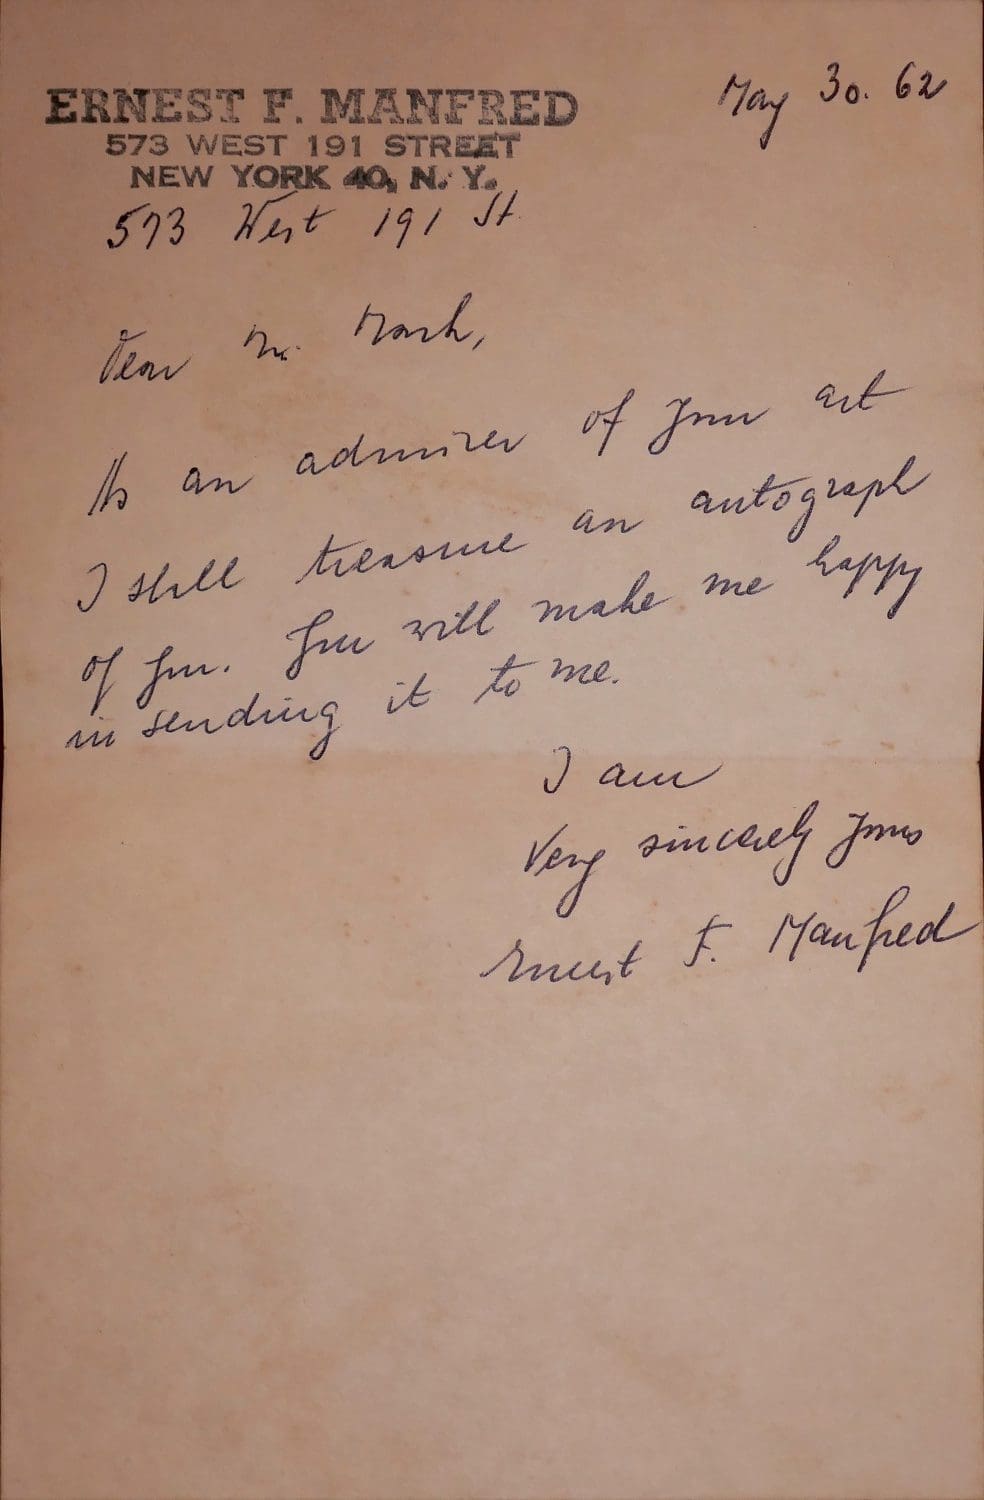 ERNEST F. MANFRED
573 WEST 191 STREET
NEW YORK 40, N. Y.
May 30. 62
573 West 191 St.
Dear Mr.
As an admirer of your art
I shall treasure an autograph
of you. You will make me happy
in sending it to me.
I am
Very sincerely yours
Ernest F. Manfred